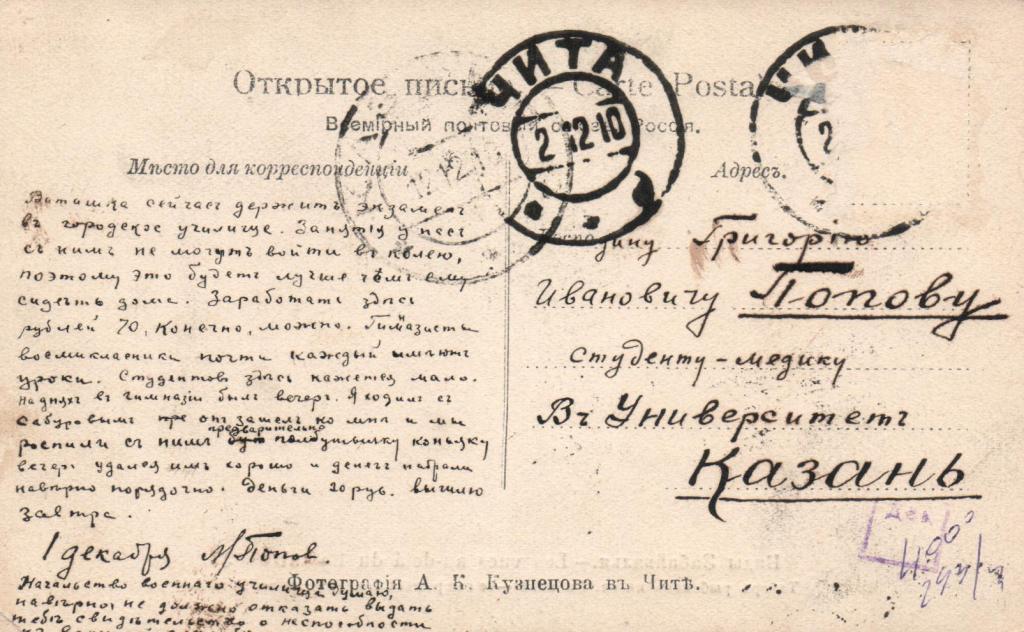 Открытое письмо — Carte Postale
Всемірный почтовый союзъ. Россія.
Мѣсто для корреспонденціи
Адресъ.
ЧИТА
2 12 10
сейчасъ держитъ экзаменъ
въ городское училище. Занятія у насъ
съ нимъ не могутъ войти въ колею,
поэтому это будетъ лучше чѣмъ ему
сидѣть дома. Заработать здѣсь
рублей 70, конечно, можно. Гимназисты
восмикласники почти каждый имѣютъ
уроки. Студентовъ здѣсь кажется мало.
На дняхъ въ гимназіи былъ вечеръ. Я ходилъ съ
Сабуровымъ зашелъ ко мнѣ и мы
предварительно
роспили съ нимъ полбутылку коньяку
вечеръ удался имъ хорошо и денегъ набрали
навѣрно порядочно. Деньги 20 руб. вышлю
завтра.
1 декабря М Попов
Начальство военнаго училища думаю,
навѣрно, не должно отказать выдать
тебѣ свидѣтельство о неспособности
Господину Григорію
Ивановичу Попову
студенту-медику
Въ Университетъ
Казань
Фотографія А. К. Кузнецова въ Читѣ.